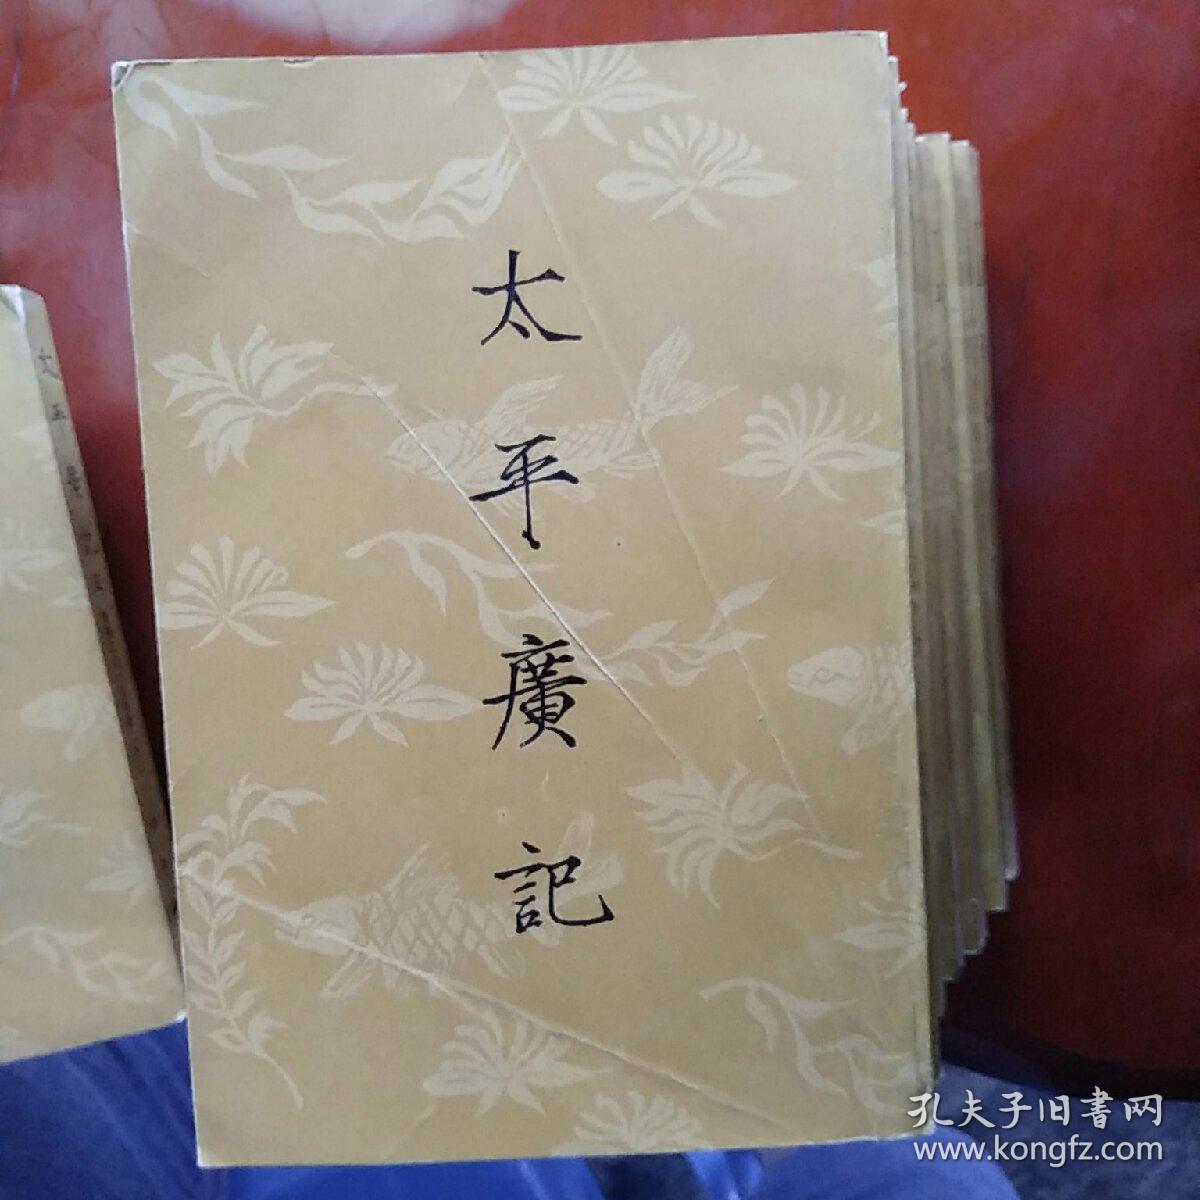 太平廣記
太平廣記
孔夫子旧書网
www.kongfz.com